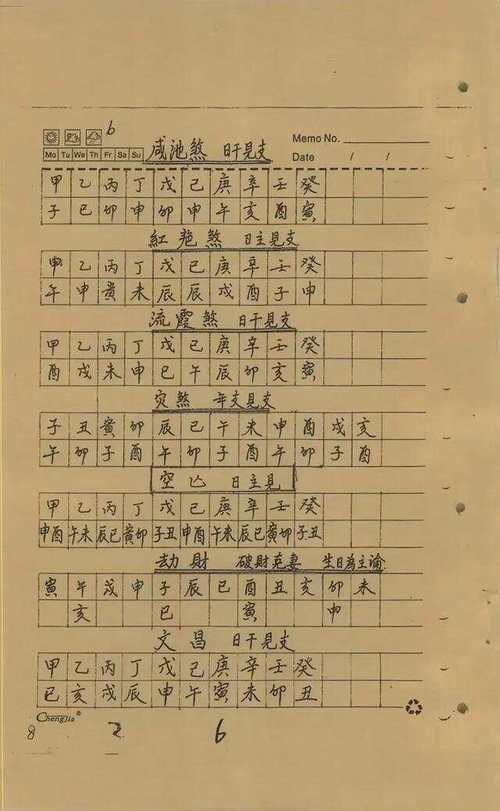 6
Mo Tu We Th Fr Sa Su
咸池煞 日干見支
Memo No.
Date / /
甲 乙 丙 丁 戊 己 庚 辛 壬 癸
子 巳 卯 申 卯 申 午 亥 酉 寅
紅艶煞 日主見支
甲 乙 丙 丁 戊 己 庚 辛 壬 癸
午 申 寅 未 辰 辰 戌 酉 子 申
流霞煞 日干見支
甲 乙 丙 丁 戊 己 庚 辛 壬 癸
酉 戌 未 申 巳 午 辰 卯 亥 寅
灾煞 年支見支
子 丑 寅 卯 辰 巳 午 未 申 酉 戌 亥
午 卯 子 酉 午 卯 子 酉 午 卯 子 酉
空亡 日主見
甲 乙 丙 丁 戊 己 庚 辛 壬 癸
申酉 午未 辰巳 寅卯 子丑 申酉 午未 辰巳 寅卯 子丑
劫財 破財克妻 生日為主論
寅 午 戌 申 子 辰 巳 酉 丑 亥 卯 未
亥 巳 寅 申
文昌 日干見支
甲 乙 丙 丁 戊 己 庚 辛 壬 癸
巳 亥 戌 辰 申 午 寅 未 卯 丑
Chengjia®
8 2 6